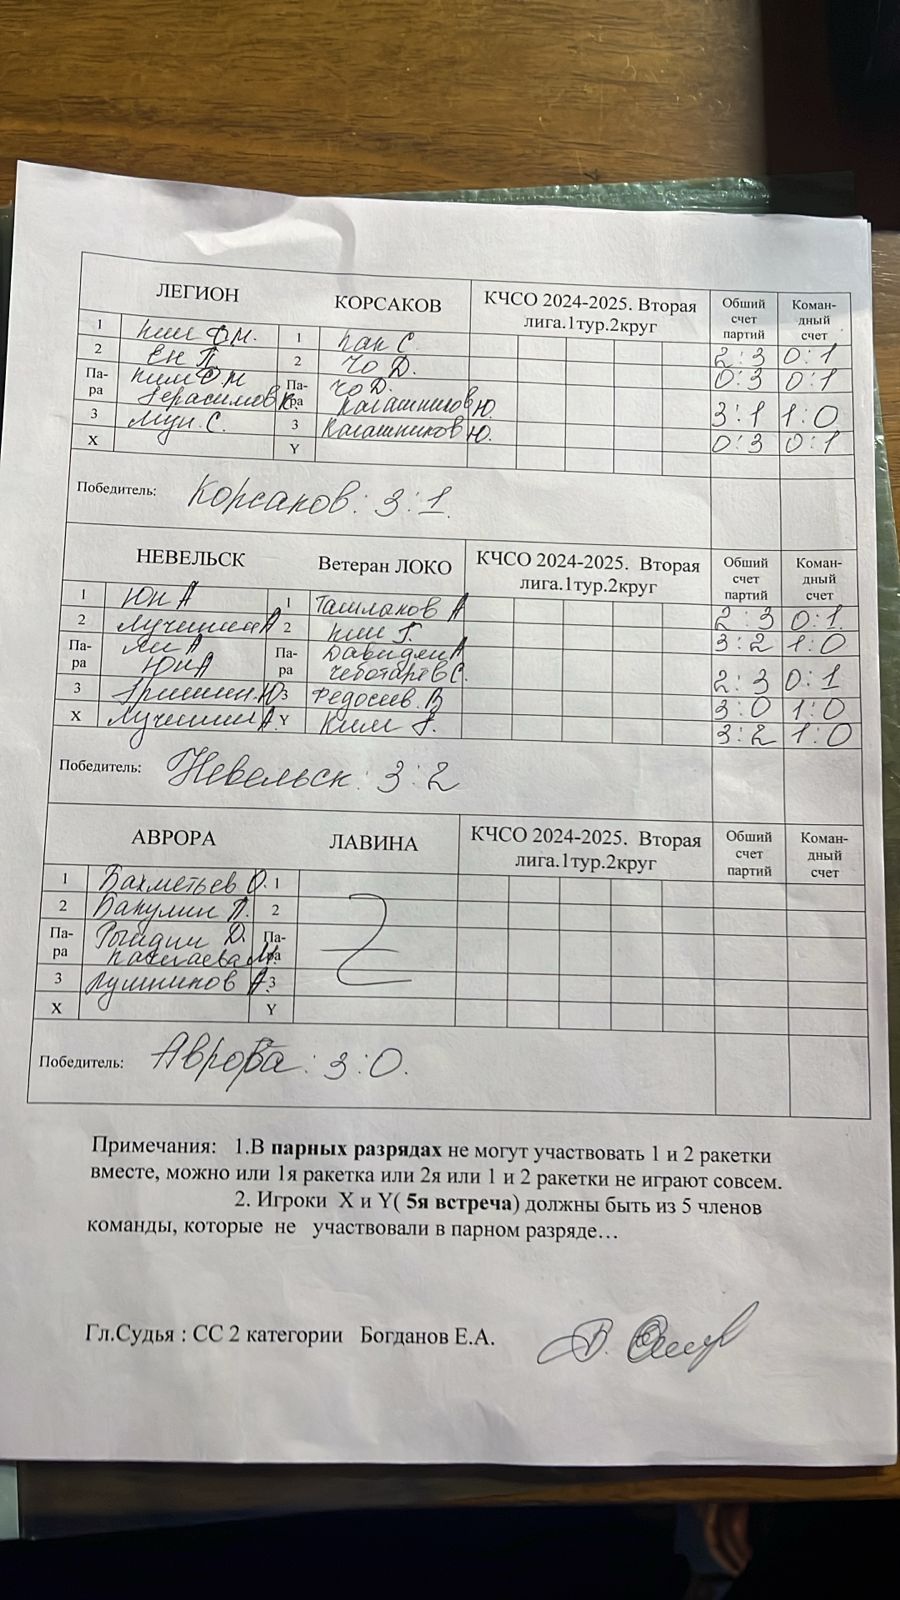 ЛЕГИОН КОРСАКОВ КЧСО 2024-2025. Вторая лига.1тур.2круг Обший счет партий Коман-дный счет
1 Ким Ф.М. 1 Пак С. 2:3 0:1
2 Ен П. 2 Чо Д. 0:3 0:1
Па-ра Ким Ф.М Па-ра Чо Д.
Герасимов К. Калашников Ю. 3:1 1:0
3 Мун С. 3 Калашников Ю. 0:3 0:1
X Y
Победитель: Корсаков: 3:1.
НЕВЕЛЬСК Ветеран ЛОКО КЧСО 2024-2025. Вторая лига.1тур.2круг Обший счет партий Коман-дный счет
1 Юн А 1 Ташлаков А 2:3 0:1.
2 Лучинин А 2 Ким Г. 3:2 1:0
Па-ра А Па-ра Давидян А
Юн А Чеботарев С. 2:3 0:1
3 Гришин. Ю 3 Федосеев. В 3:0 1:0
X Лучинин А. Y Ким Г. 3:2 1:0
Победитель: Невельск: 3:2
АВРОРА ЛАВИНА КЧСО 2024-2025. Вторая лига.1тур.2круг Обший счет партий Коман-дный счет
1 Бахметьев О. 1
2 Бакулин П. 2
Па-ра Д. Па-ра
3 А. 3
X Y
Победитель: Аврора: 3:0.
Примечания: 1.В парных разрядах не могут участвовать 1 и 2 ракетки
вместе, можно или 1я ракетка или 2я или 1 и 2 ракетки не играют совсем.
2. Игроки X и Y( 5я встреча) должны быть из 5 членов
команды, которые не участвовали в парном разряде…
Гл.Судья : СС 2 категории Богданов Е.А.